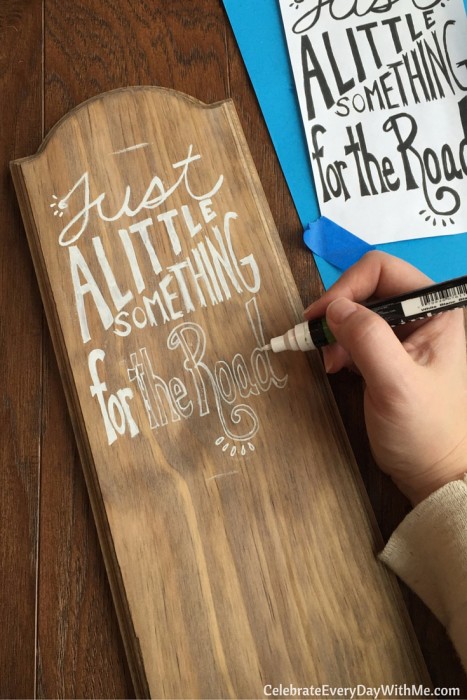 Just
A LITTLE
SOMETHING
for the Road
Just
A LITTLE
SOMETHING
for the Road
CelebrateEveryDayWithMe.com